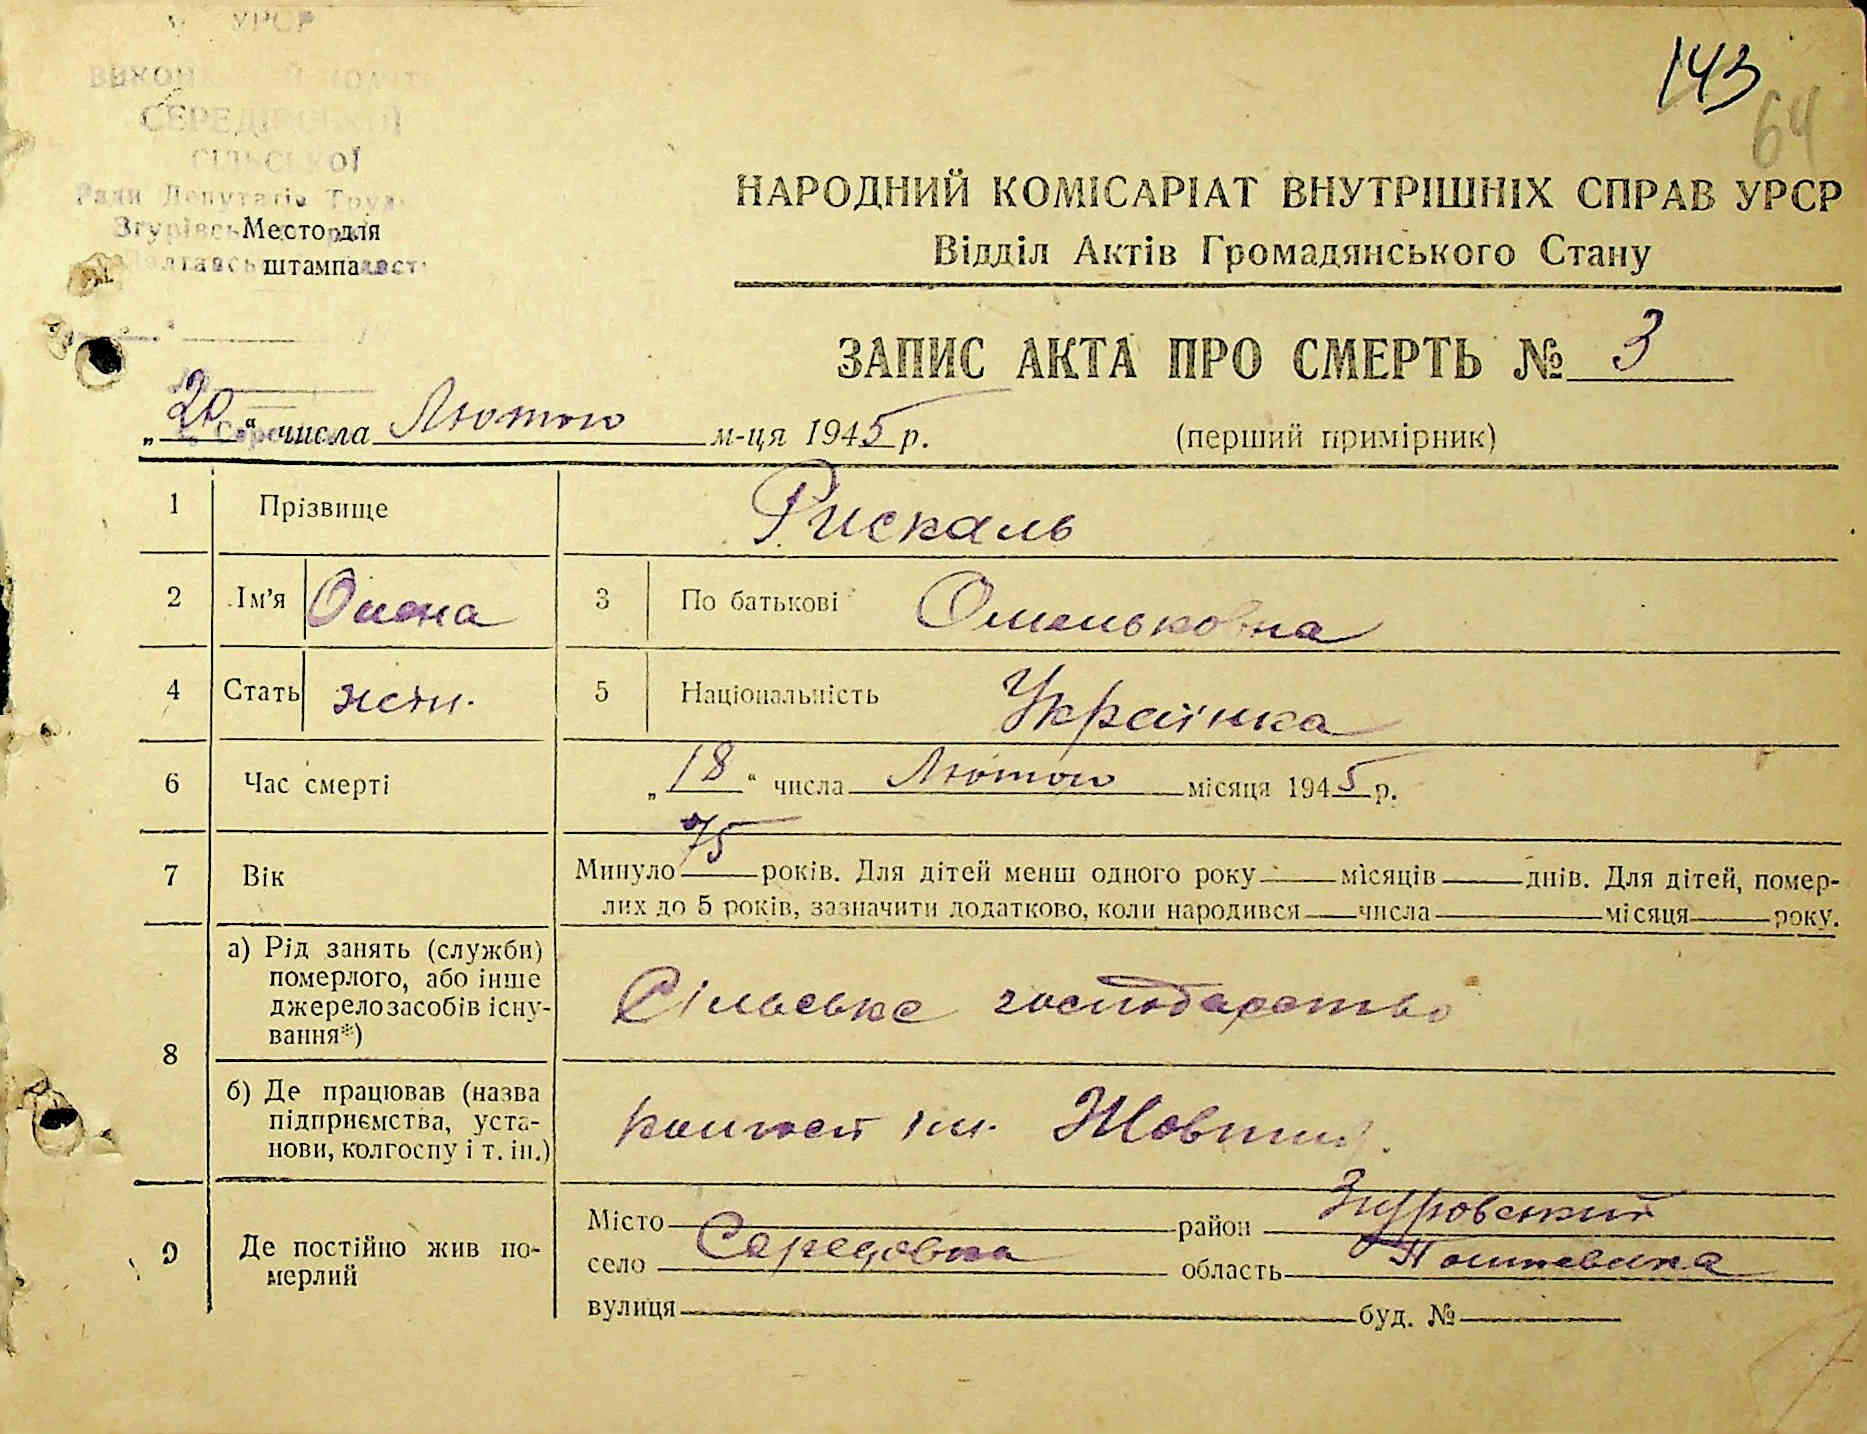 УРСР
СІЛЬСЬКОЇ
Ради Депутатів
Место для
штампа
143
64
НАРОДНИЙ КОМІСАРІАТ ВНУТРІШНІХ СПРАВ УРСР
Відділ Актів Громадянського Стану
ЗАПИС АКТА ПРО СМЕРТЬ № 3
„20“ числа Лютого м-ця 1945 р.
(перший примірник)
1 Прізвище Рискаль
2 Ім'я Олена 3 По батькові Омельковна
4 Стать жін. 5 Національність Українка
6 Час смерті „18“ числа Лютого місяця 1945 р.
7 Вік Минуло 75 років. Для дітей менш одного року місяців днів. Для дітей, помер-
лих до 5 років, зазначити додатково, коли народився числа місяця року.
8 а) Рід занять (служби)
померлого, або інше
джерело засобів існу-
вання*)
Сільське господарство
б) Де працював (назва
підприємства, уста-
нови, колгоспу і т. ін.)
колгосп ім. Жовтня.
9 Де постійно жив по-
мерлий
Місто район Згуровський
село Середовка область Полтавська
вулиця буд. №